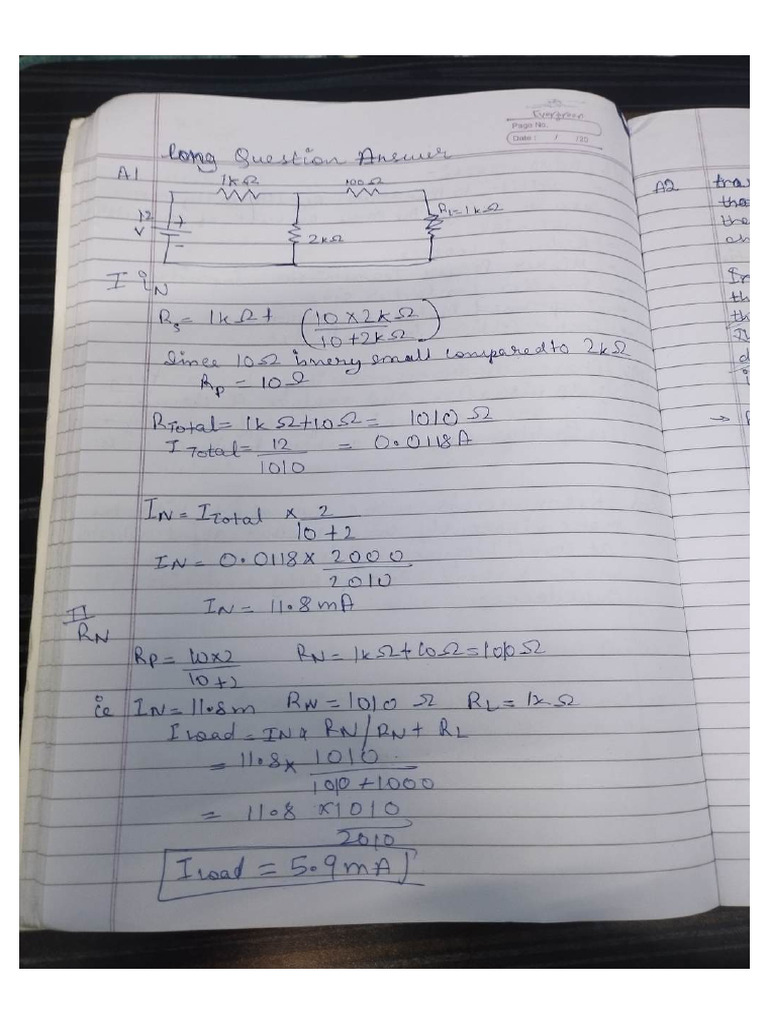 Evergreen
Page No.
Date : / /20
Long Question Answer
A1
1kΩ 100Ω
12 V + -
2kΩ
RL=1kΩ
I iN
Rs= 1kΩ+ (10×2kΩ / 10+2kΩ)
Since 10Ω is very small compared to 2kΩ
Rp = 10Ω
RTotal= 1kΩ+10Ω= 1010Ω
ITotal= 12/1010 = 0.0118A
IN= ITotal × 2/10+2
IN= 0.0118× 2000/2010
IN= 11.8mA
II RN
RP= 10×2/10+2 RN= 1kΩ+10Ω=1010Ω
ie IN=11.8m RN=1010Ω RL=1kΩ
I load = IN× RN/RN+RL
= 11.8× 1010/1010+1000
= 11.8 ×1010/2010
I load = 5.9mA
A2